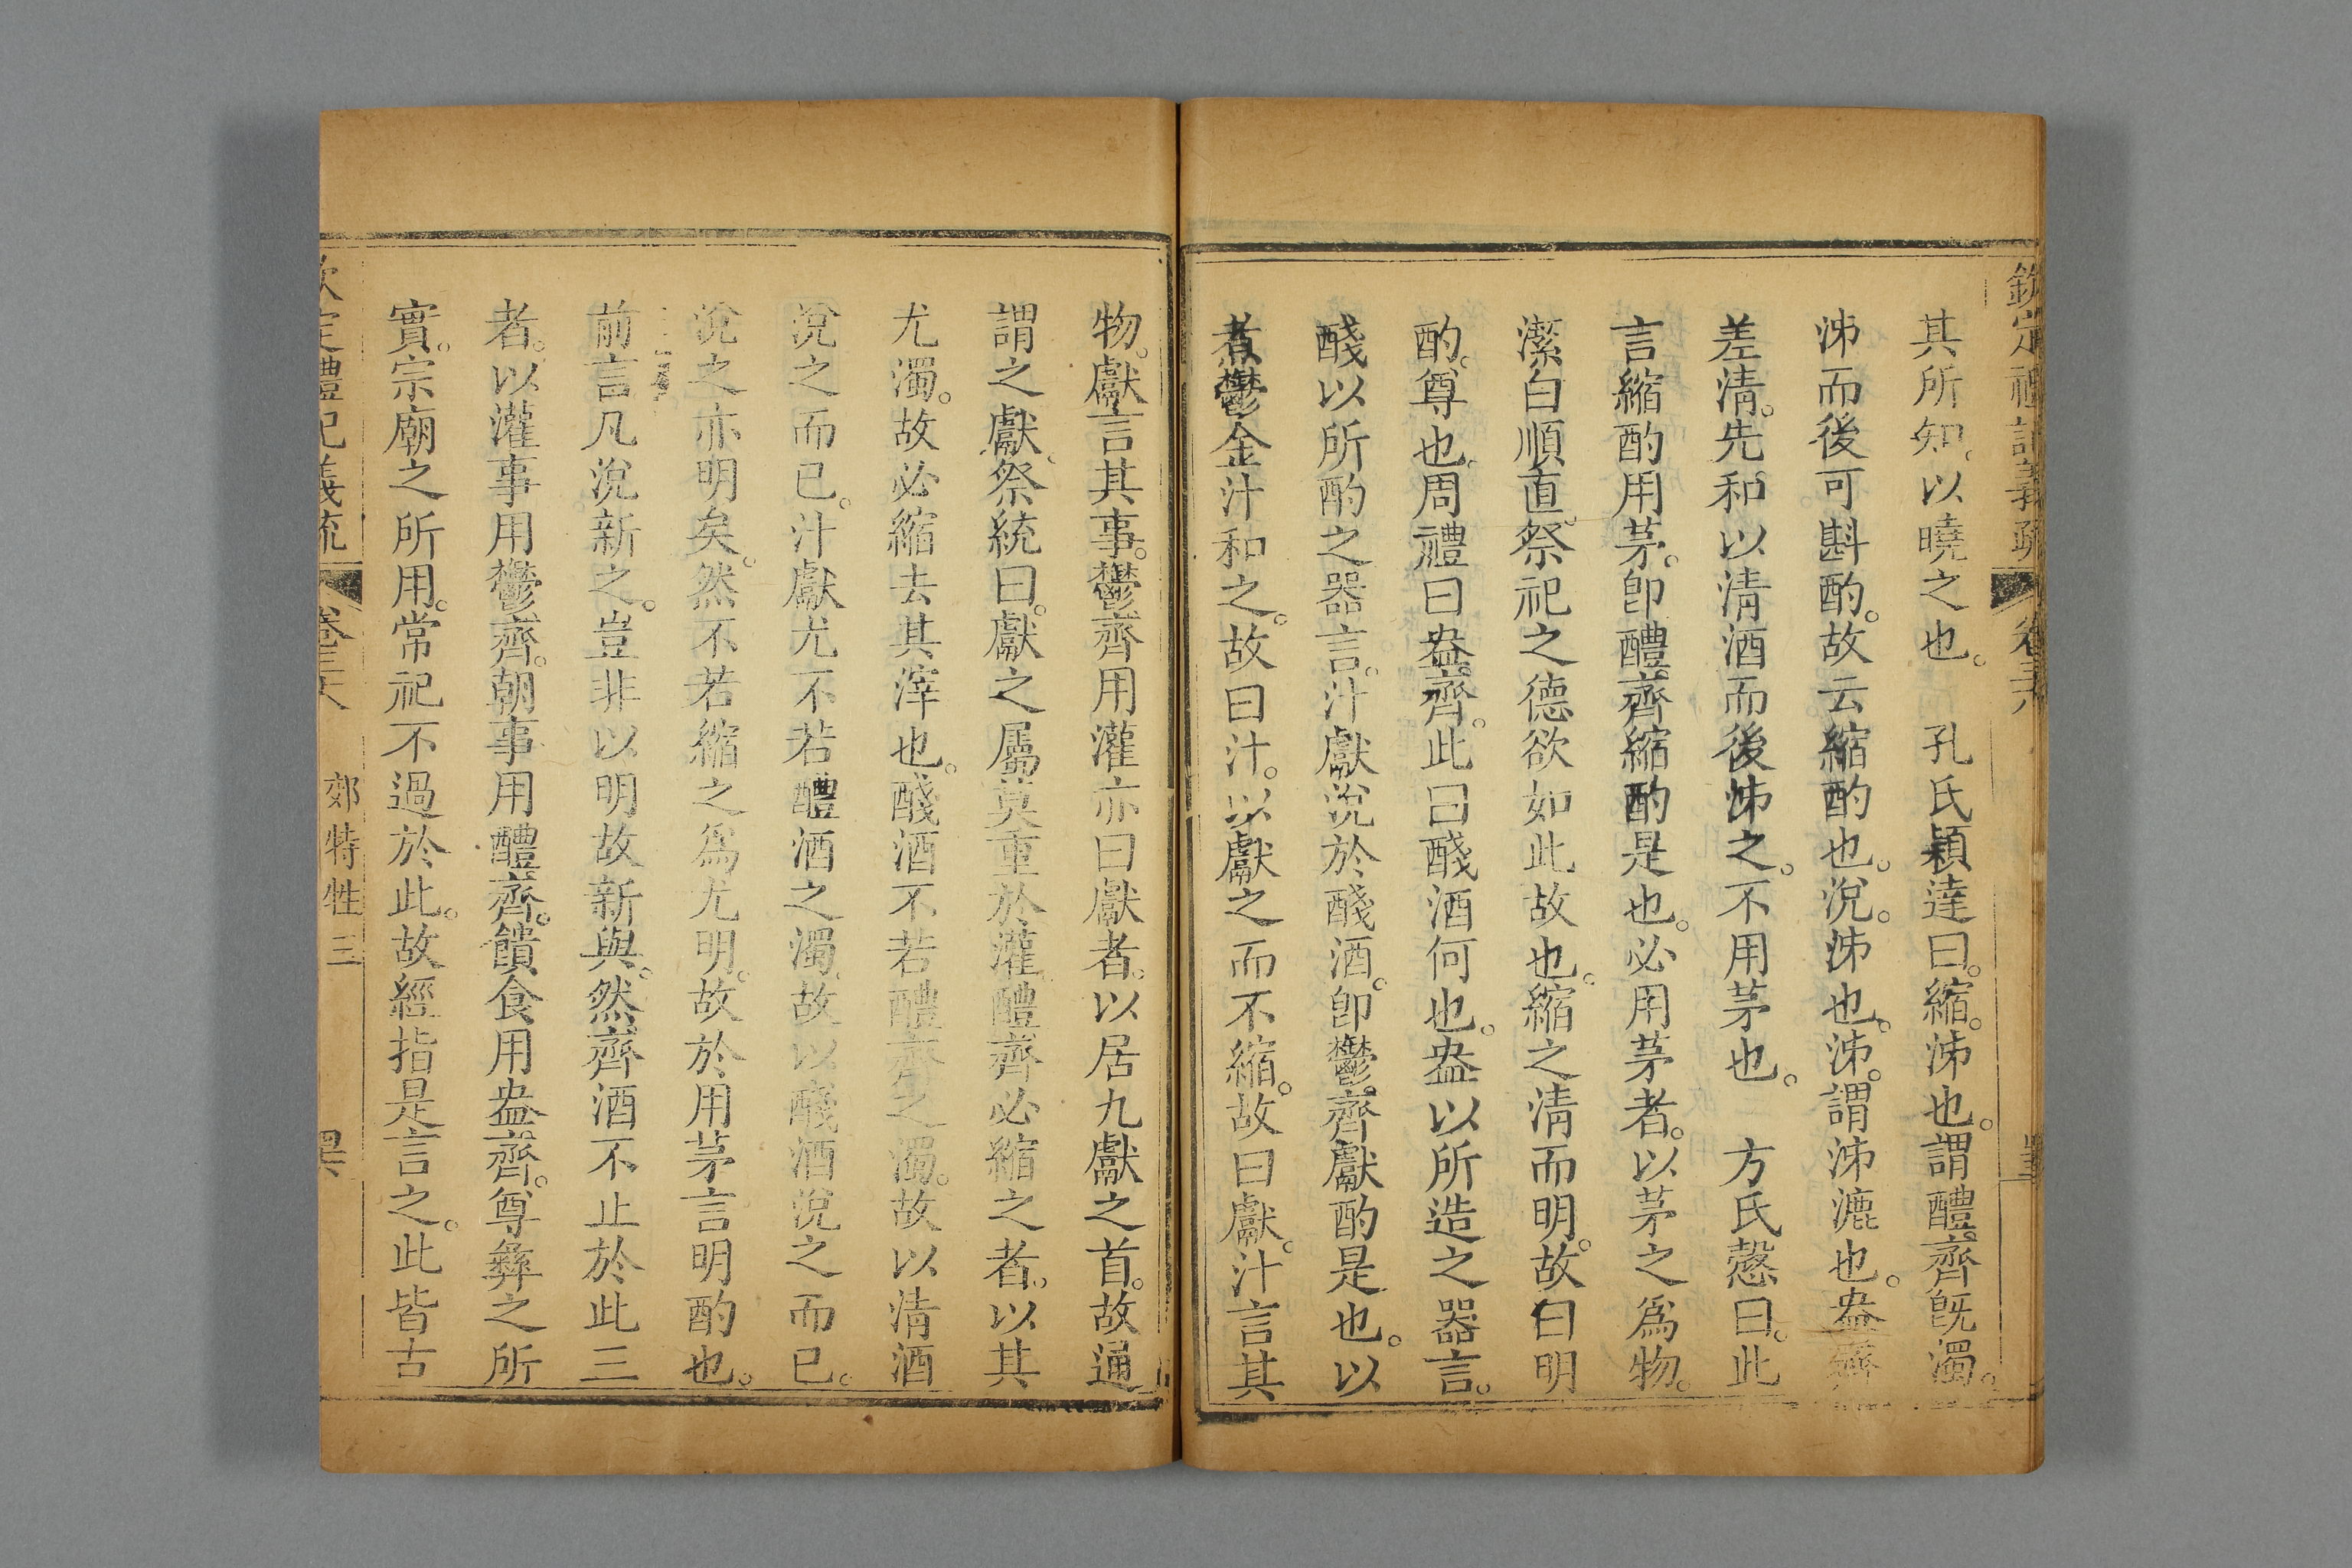 欽定禮記義疏 卷三十八
其所知。以曉之也。 孔氏穎達曰。縮。泲也。謂醴齊旣濁。
泲而後可斟酌。故云縮酌也。涚。泲也。泲。謂泲漉也。盎齊
差淸。先和以淸酒而後泲之。不用茅也。 方氏慤曰。此
言縮酌用茅。卽醴齊縮酌是也。必用茅者。以茅之爲物。
潔白順直。祭祀之德欲如此故也。縮之淸而明。故曰明
酌。尊也。周禮曰盎齊。此曰醆酒何也。盎以所造之器言。
醆以所酌之器言。汁獻涚於醆酒。卽鬱齊獻酌是也。以
煮鬱金汁和之。故曰汁。以獻之而不縮。故曰獻。汁言其
物。獻言其事。鬱齊用灌亦曰獻者。以居九獻之首。故通
謂之獻。祭統曰。獻之屬莫重於灌。醴齊必縮之者。以其
尤濁。故必縮去其滓也。醆酒不若醴齊之濁。故以淸酒
涚之而已。汁獻尤不若醴酒之濁。故以醆酒涚之而已。
涚之亦明矣。然不若縮之爲尤明。故於用茅言明酌也。
前言凡涚新之。豈非以明故新與。然齊酒不止於此三
者。以灌事用鬱齊。朝事用醴齊。饋食用盎齊。尊彝之所
實。宗廟之所用。常祀不過於此。故經指是言之。此皆古
欽定禮記義疏 卷三十八 郊特牲三